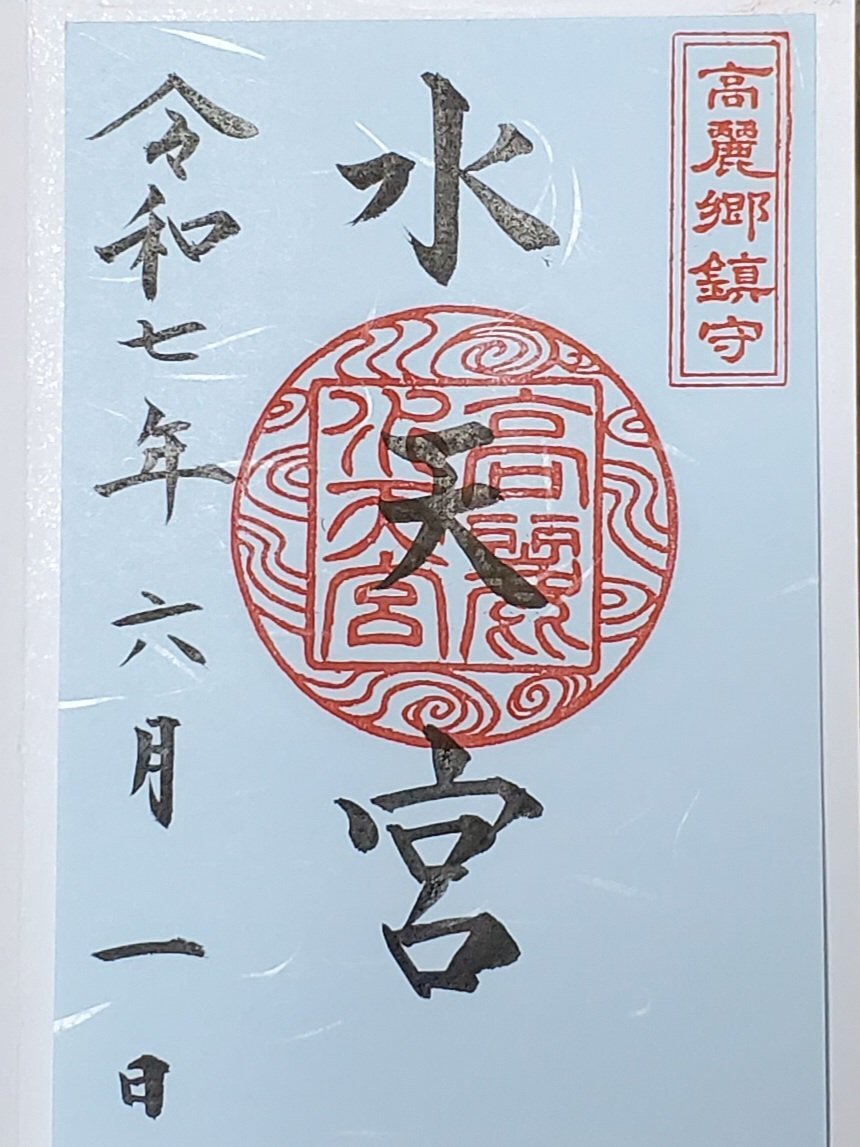 高麗郷鎮守
水天宮
高麗
水天宮
令和七年六月一日